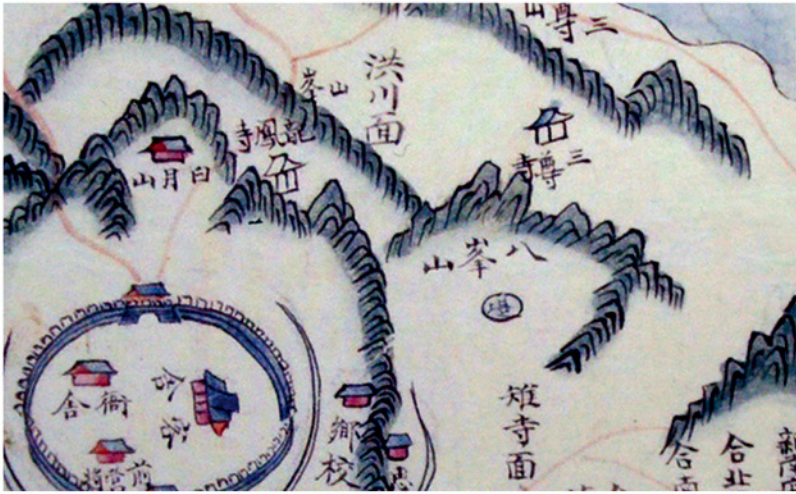 三尊山
洪川面
山峯
龍鳳寺
三尊寺
白月山
八峯山
衙舍
客舍
鄕校
雉寺面
合北
合南